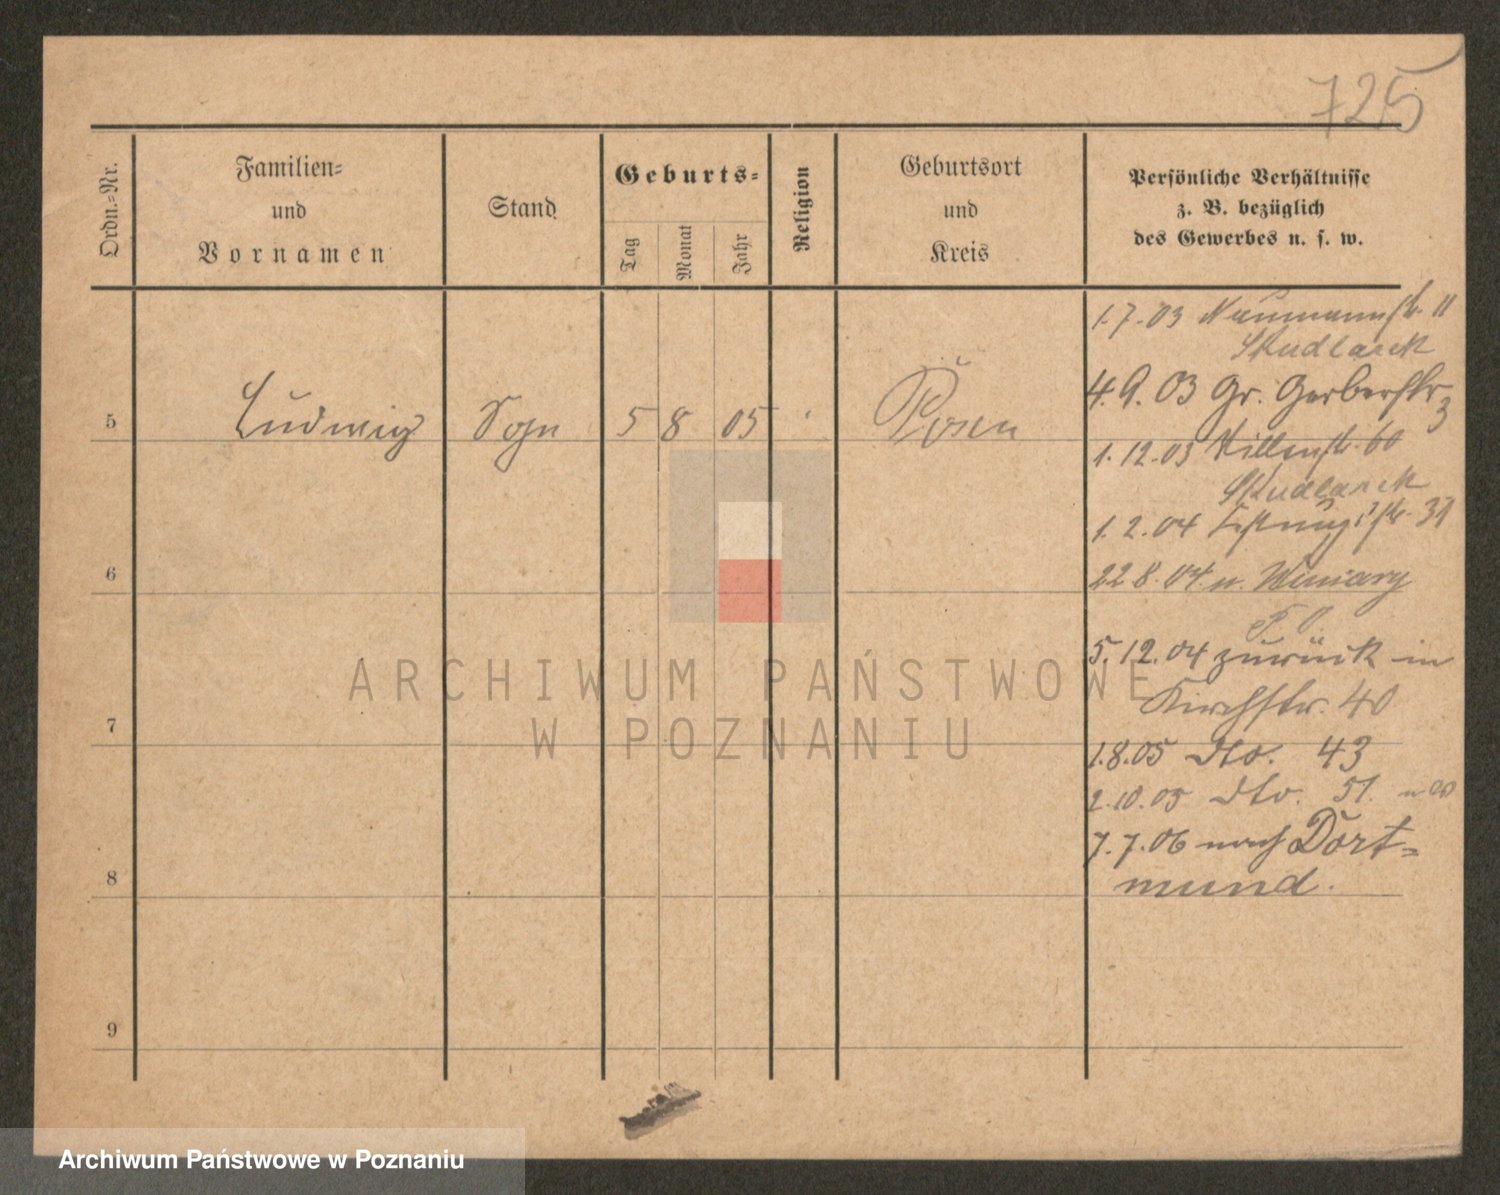 725
Ordn.-Nr.
Familien-
und
Vornamen
Stand
Geburts-
Tag
Monat
Jahr
Religion
Geburtsort
und
Kreis
Persönliche Verhältnisse
z. B. bezüglich
des Gewerbes u. s. w.
1.7.03 Naumannstr. 11
Skudlarek
4.9.03 Gr. Gerberstr.
3
5 Ludwig Sohn 5 8 05 Posen
1.12.03 60
Skudlarek
1.2.04 31
6
22 8.04 n. Winiary
5.12.04 zurück in
Kirchstr. 40
7
1.8.05 dto. 43
2.10.05 dto. 51.
7.7.06 nach Dort-
mund.
8
9
ARCHIWUM PAŃSTWOWE
W POZNANIU
Archiwum Państwowe w Poznaniu